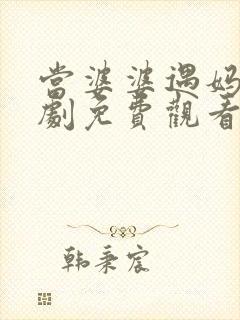 當婆婆遇媽
劇免費觀看
韩秉宸